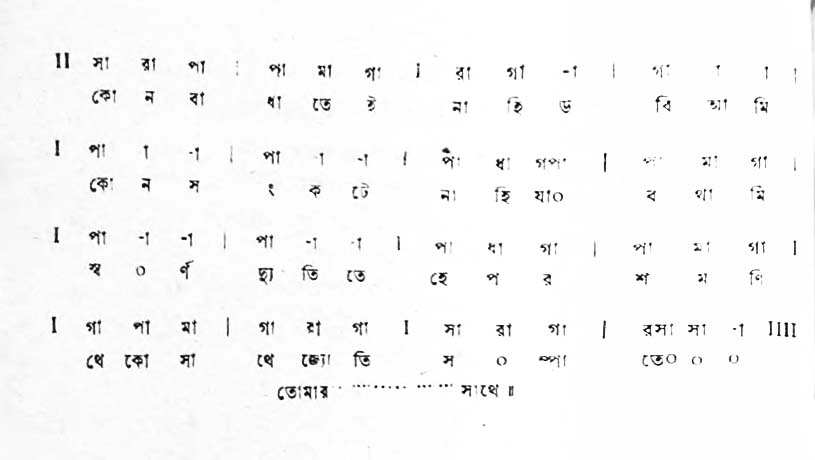 II সা রা পা | পা মা গা I রা গা -া | গা া া I
কো ন বা ধা তে ই না হি ড বি আ মি
I পা া -া | পা -া -া I পা ধা গপা | পা মা গা I
কো ন স ং ক টে না হি যা০ ব থা মি
I পা -া -া | পা -া -া I পা ধা গা | পা মা গা I
স্ব ০ র্ণ দ্যু তি তে হে প র শ ম ণি
I গা পা মা | গা রা গা I সা রা গা | রসা সা -া IIII
থে কো সা থে জ্যো তি স ০ ম্পা তে০ ০ ০
তোমার ... ... ... ... সাথে ॥